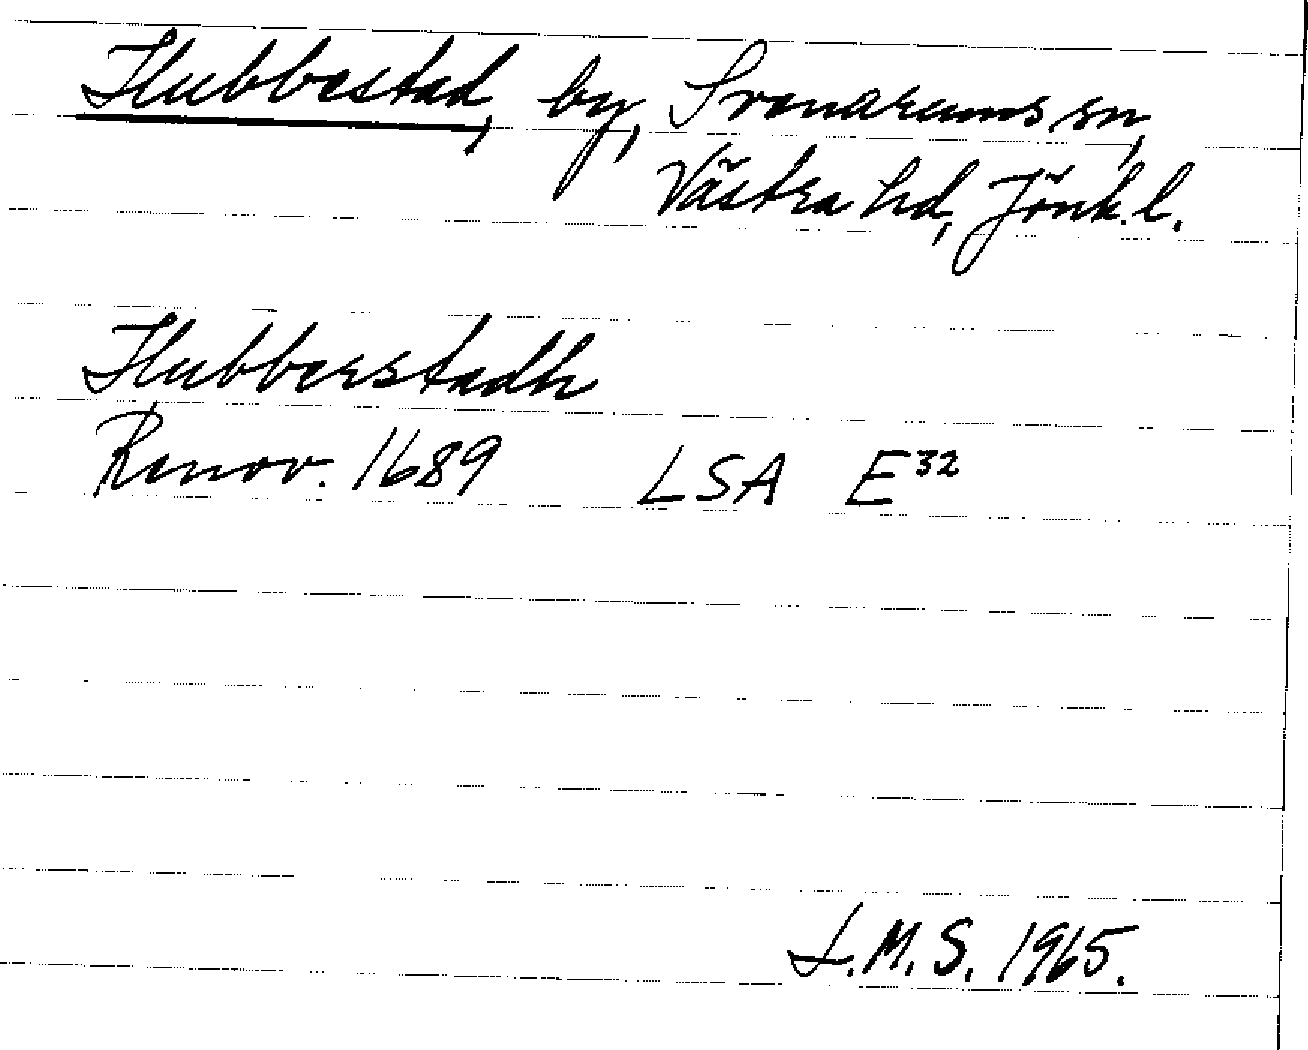 Hubbestad, by, Svenarums sn,
Västra hd, Jönk. l.
Hubberstadh
Renov. 1689 LSA E³²
I.M.S. 1965.